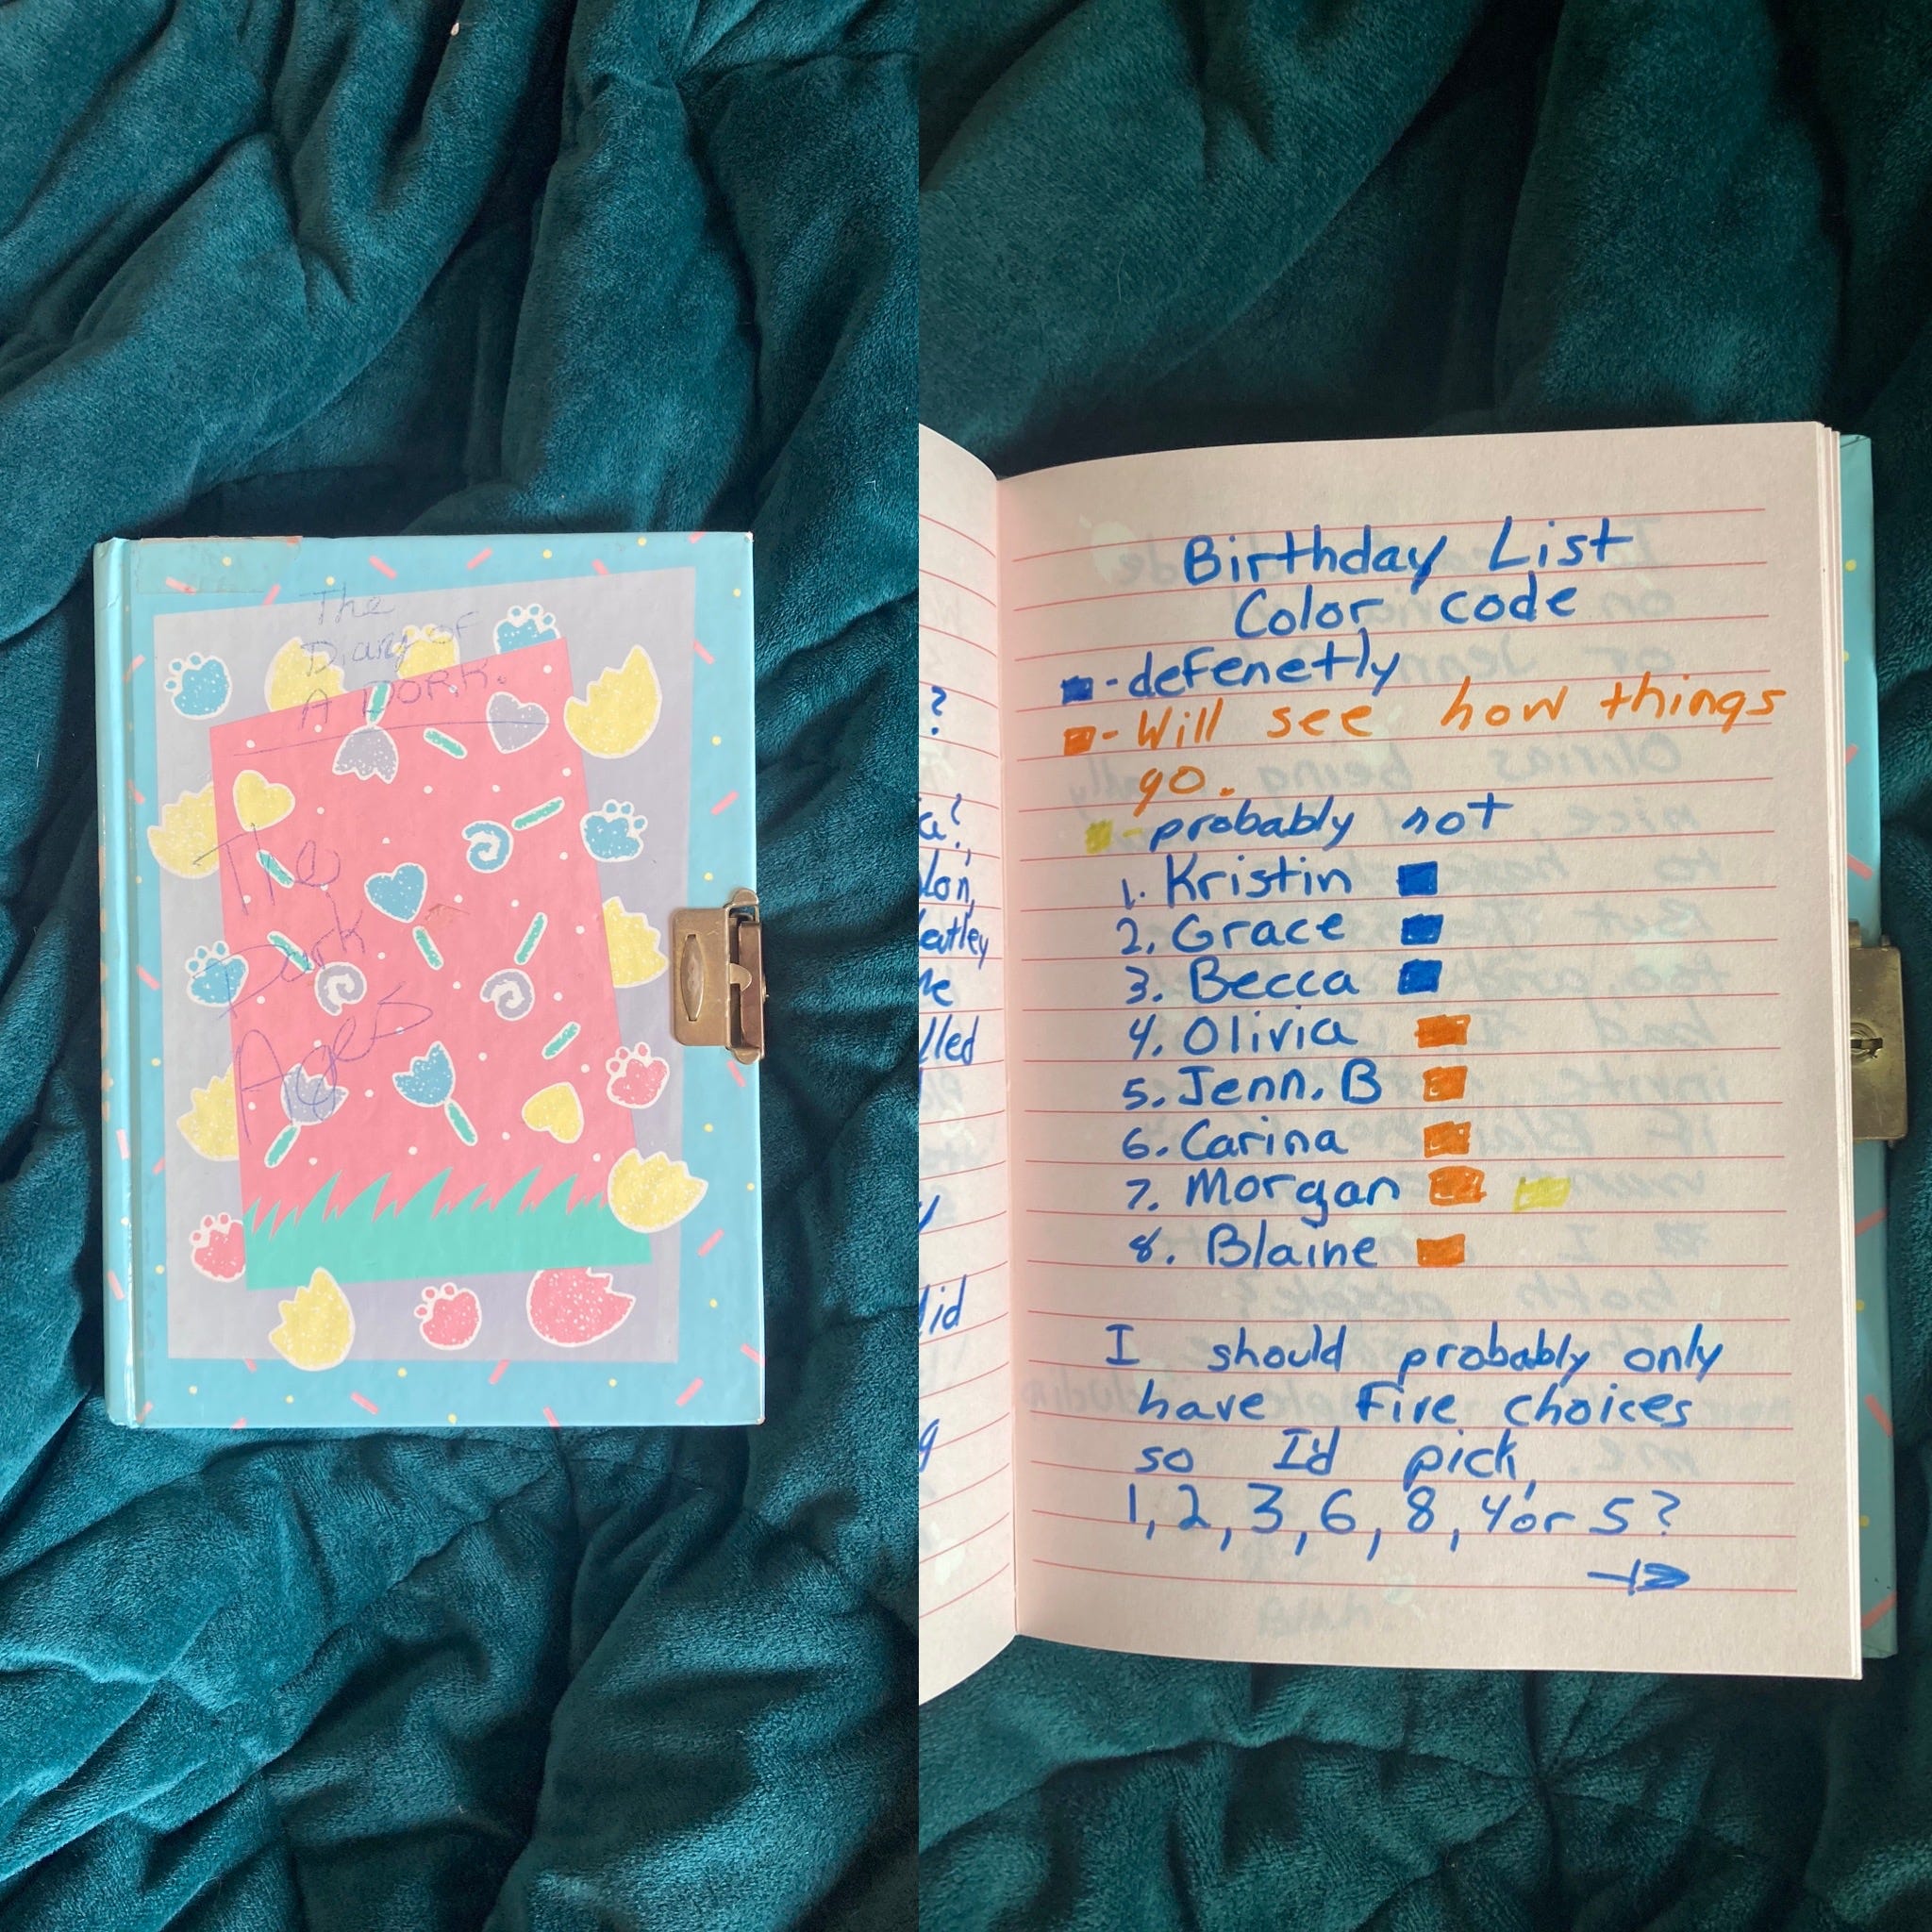 The
Diary of
A DORK.
The
Dark
Ages
?
a?
lon,
eatley
lled
lid
g
Birthday List
Color code
- defenetly
- Will see how things
go.
- probably not
1. Kristin
2. Grace
3. Becca
4. Olivia
5. Jenn. B
6. Carina
7. Morgan
8. Blaine
I should probably only
have Five choices
so I'd pick,
1, 2, 3, 6, 8, 4 or 5?